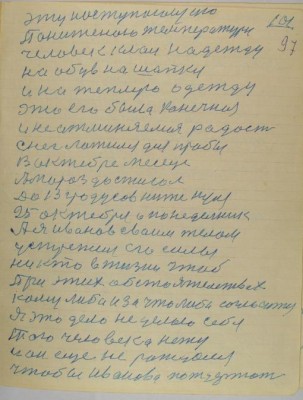 эту поступаемую
101
Пониженого температури
97
человек клал надежду
на обув на шапку
и на теплую одежду
это его была конечная
и неотменяемая радост
снег ложился для пробы
В октебре месеце
А мороз достигал
До 13 градусов ниже нуля
25 октебря в понеделник
А я Иванов своим телом
устремился силы
никто в жизни чтоб
При этих обстоятелствах
кому либа из за что либа согласитса
Я это дело на целого себя
Того человека нету
и он еще не родился
чтобы Иванова